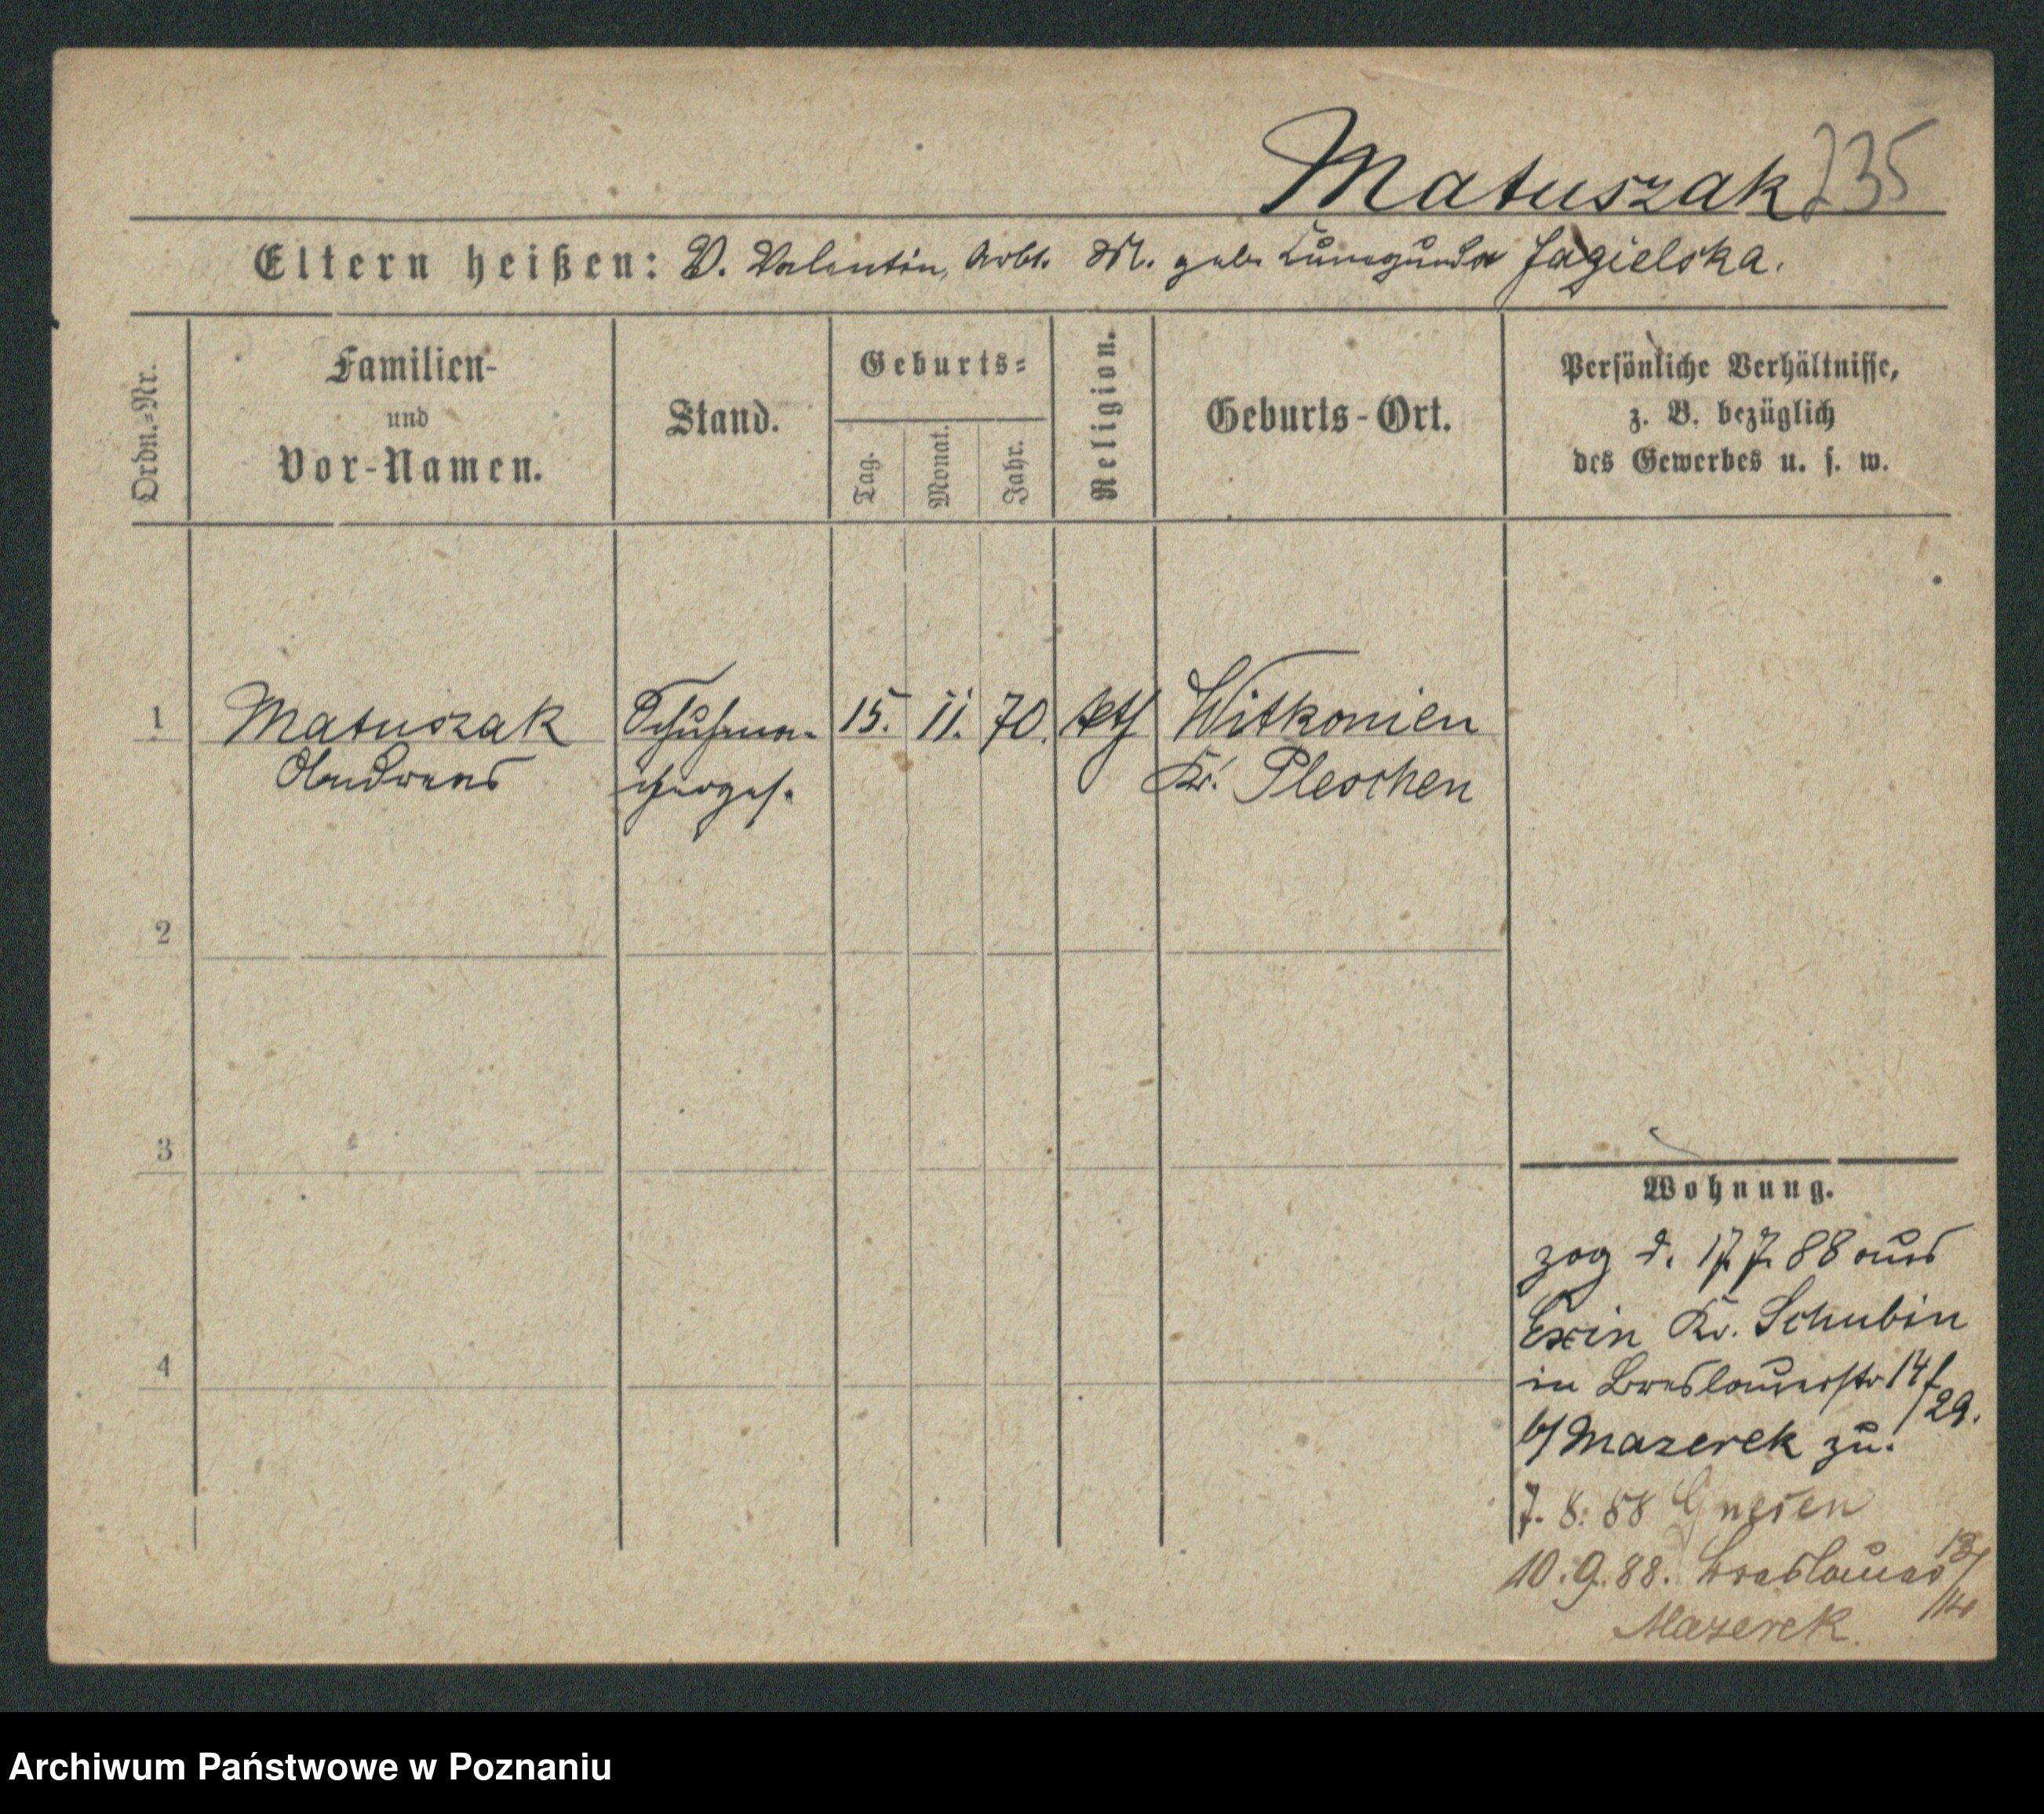 Matuszak 235
Eltern heißen: V. Valentin, Arbt. M. geb. Kunegunda Jagielska.
Ordn.-Nr.
Familien-
und
Vor-Namen.
Stand.
Geburts-
Tag.
Monat.
Jahr.
Religion.
Geburts-Ort.
Persönliche Verhältnisse,
z. B. bezüglich
des Gewerbes u. s. w.
1 Matuszak Schuhma- 15. 11. 70. kth Witkonien
Andreas cherges. Kr. Pleschen
2
3
4
Wohnung.
zog d. 17.7.88 aus
Exin Kr. Schubin
in Breslauerstr 14/
29.
b/ Mazerek zu.
7. 8. 88 Gnesen
10.9.88. Breslauer 13/
14
Mazerek.
Archiwum Państwowe w Poznaniu